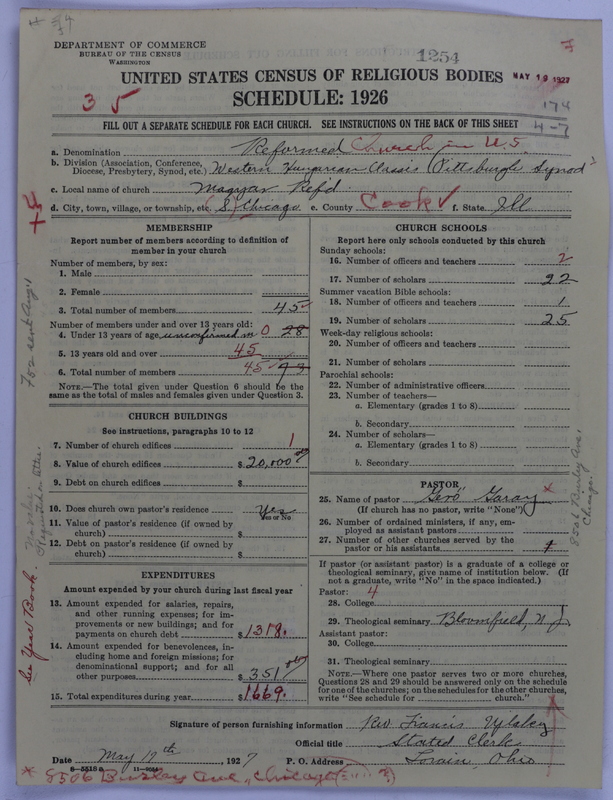 DEPARTMENT OF COMMERCE
BUREAU OF THE CENSUS
WASHINGTON
1254
MAY 19 1927
UNITED STATES CENSUS OF RELIGIOUS BODIES
SCHEDULE: 1926
35
174
4-7
FILL OUT A SEPARATE SCHEDULE FOR EACH CHURCH. SEE INSTRUCTIONS ON THE BACK OF THIS SHEET
a. Denomination Reformed Church in U.S.
b. Division (Association, Conference, Diocese, Presbytery, Synod, etc.) Western Hungarian Classis (Pittsburgh Synod)
c. Local name of church Magyar Ref'd.
d. City, town, village, or township, etc. (S.) Chicago e. County Cook f. State Ill
MEMBERSHIP
Report number of members according to definition of
member in your church
Number of members, by sex:
1. Male
2. Female
3. Total number of members 45
Number of members under and over 13 years old:
4. Under 13 years of age, unconfirmed 0 28
5. 13 years old and over 45
6. Total number of members 45 73
NOTE.—The total given under Question 6 should be the
same as the total of males and females given under Question 3.
CHURCH BUILDINGS
See instructions, paragraphs 10 to 12
7. Number of church edifices 1
8. Value of church edifices $20,000
9. Debt on church edifices $
10. Does church own pastor's residence Yes
Yes or No
11. Value of pastor's residence (if owned by
church) $
12. Debt on pastor's residence (if owned by
church) $
EXPENDITURES
Amount expended by your church during last fiscal year
13. Amount expended for salaries, repairs,
and other running expenses; for im-
provements or new buildings; and for
payments on church debt $1318.
14. Amount expended for benevolences, in-
cluding home and foreign missions; for
denominational support; and for all
other purposes $351
15. Total expenditures during year $1669.
CHURCH SCHOOLS
Report here only schools conducted by this church
Sunday schools:
16. Number of officers and teachers 2
17. Number of scholars 22
Summer vacation Bible schools:
18. Number of officers and teachers 1
19. Number of scholars 25
Week-day religious schools:
20. Number of officers and teachers
21. Number of scholars
Parochial schools:
22. Number of administrative officers
23. Number of teachers—
a. Elementary (grades 1 to 8)
b. Secondary
24. Number of scholars—
a. Elementary (grades 1 to 8)
b. Secondary
PASTOR
25. Name of pastor Gerö Garay x
(If church has no pastor, write "None")
26. Number of ordained ministers, if any, em-
ployed as assistant pastors
27. Number of other churches served by the
pastor or his assistants
If pastor (or assistant pastor) is a graduate of a college or
theological seminary, give name of institution below. (If
not a graduate, write "No" in the space indicated.)
Pastor: 4
28. College
29. Theological seminary Bloomfield, N.J.
Assistant pastor:
30. College
31. Theological seminary
NOTE.—Where one pastor serves two or more churches,
Questions 28 and 29 should be answered only on the schedule
for one of the churches; on the schedules for the other churches,
write "See schedule for church."
See Year Book.
Signature of person furnishing information Rev Francis
Official title Stated Clerk
Date May 17th, 1927 P. O. Address Lorain, Ohio
8-5518 a 11-9024
* 8506 Burley Ave, Chicago
8506 Burley Ave, Chicago.